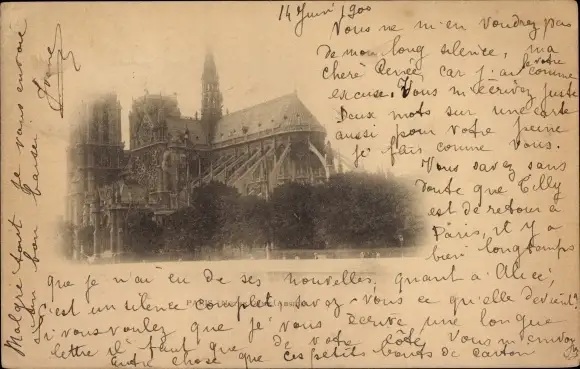 14 Juin 1900
Vous ne m'en voudrez pas
de mon long silence, ma
chère Renée, car j'ai la vôtre comme
excuse. Vous m'écrivez juste
Deux mots sur une carte
aussi pour votre peine
je fais comme vous.
Vous savez sans
doute que Tilly
est de retour à
Paris, il y a
bien longtemps
que je n'ai eu de ses nouvelles. Quant à Alice,
c'est un silence complet, savez-vous ce qu'elle devient?
si vous voulez que je vous écrive une longue
lettre il faut que de votre côté vous m'envoyez
autre chose que ces petits bouts de carton
Malgré tout je vous envoie
un bon baiser.
Yvonne
PARIS